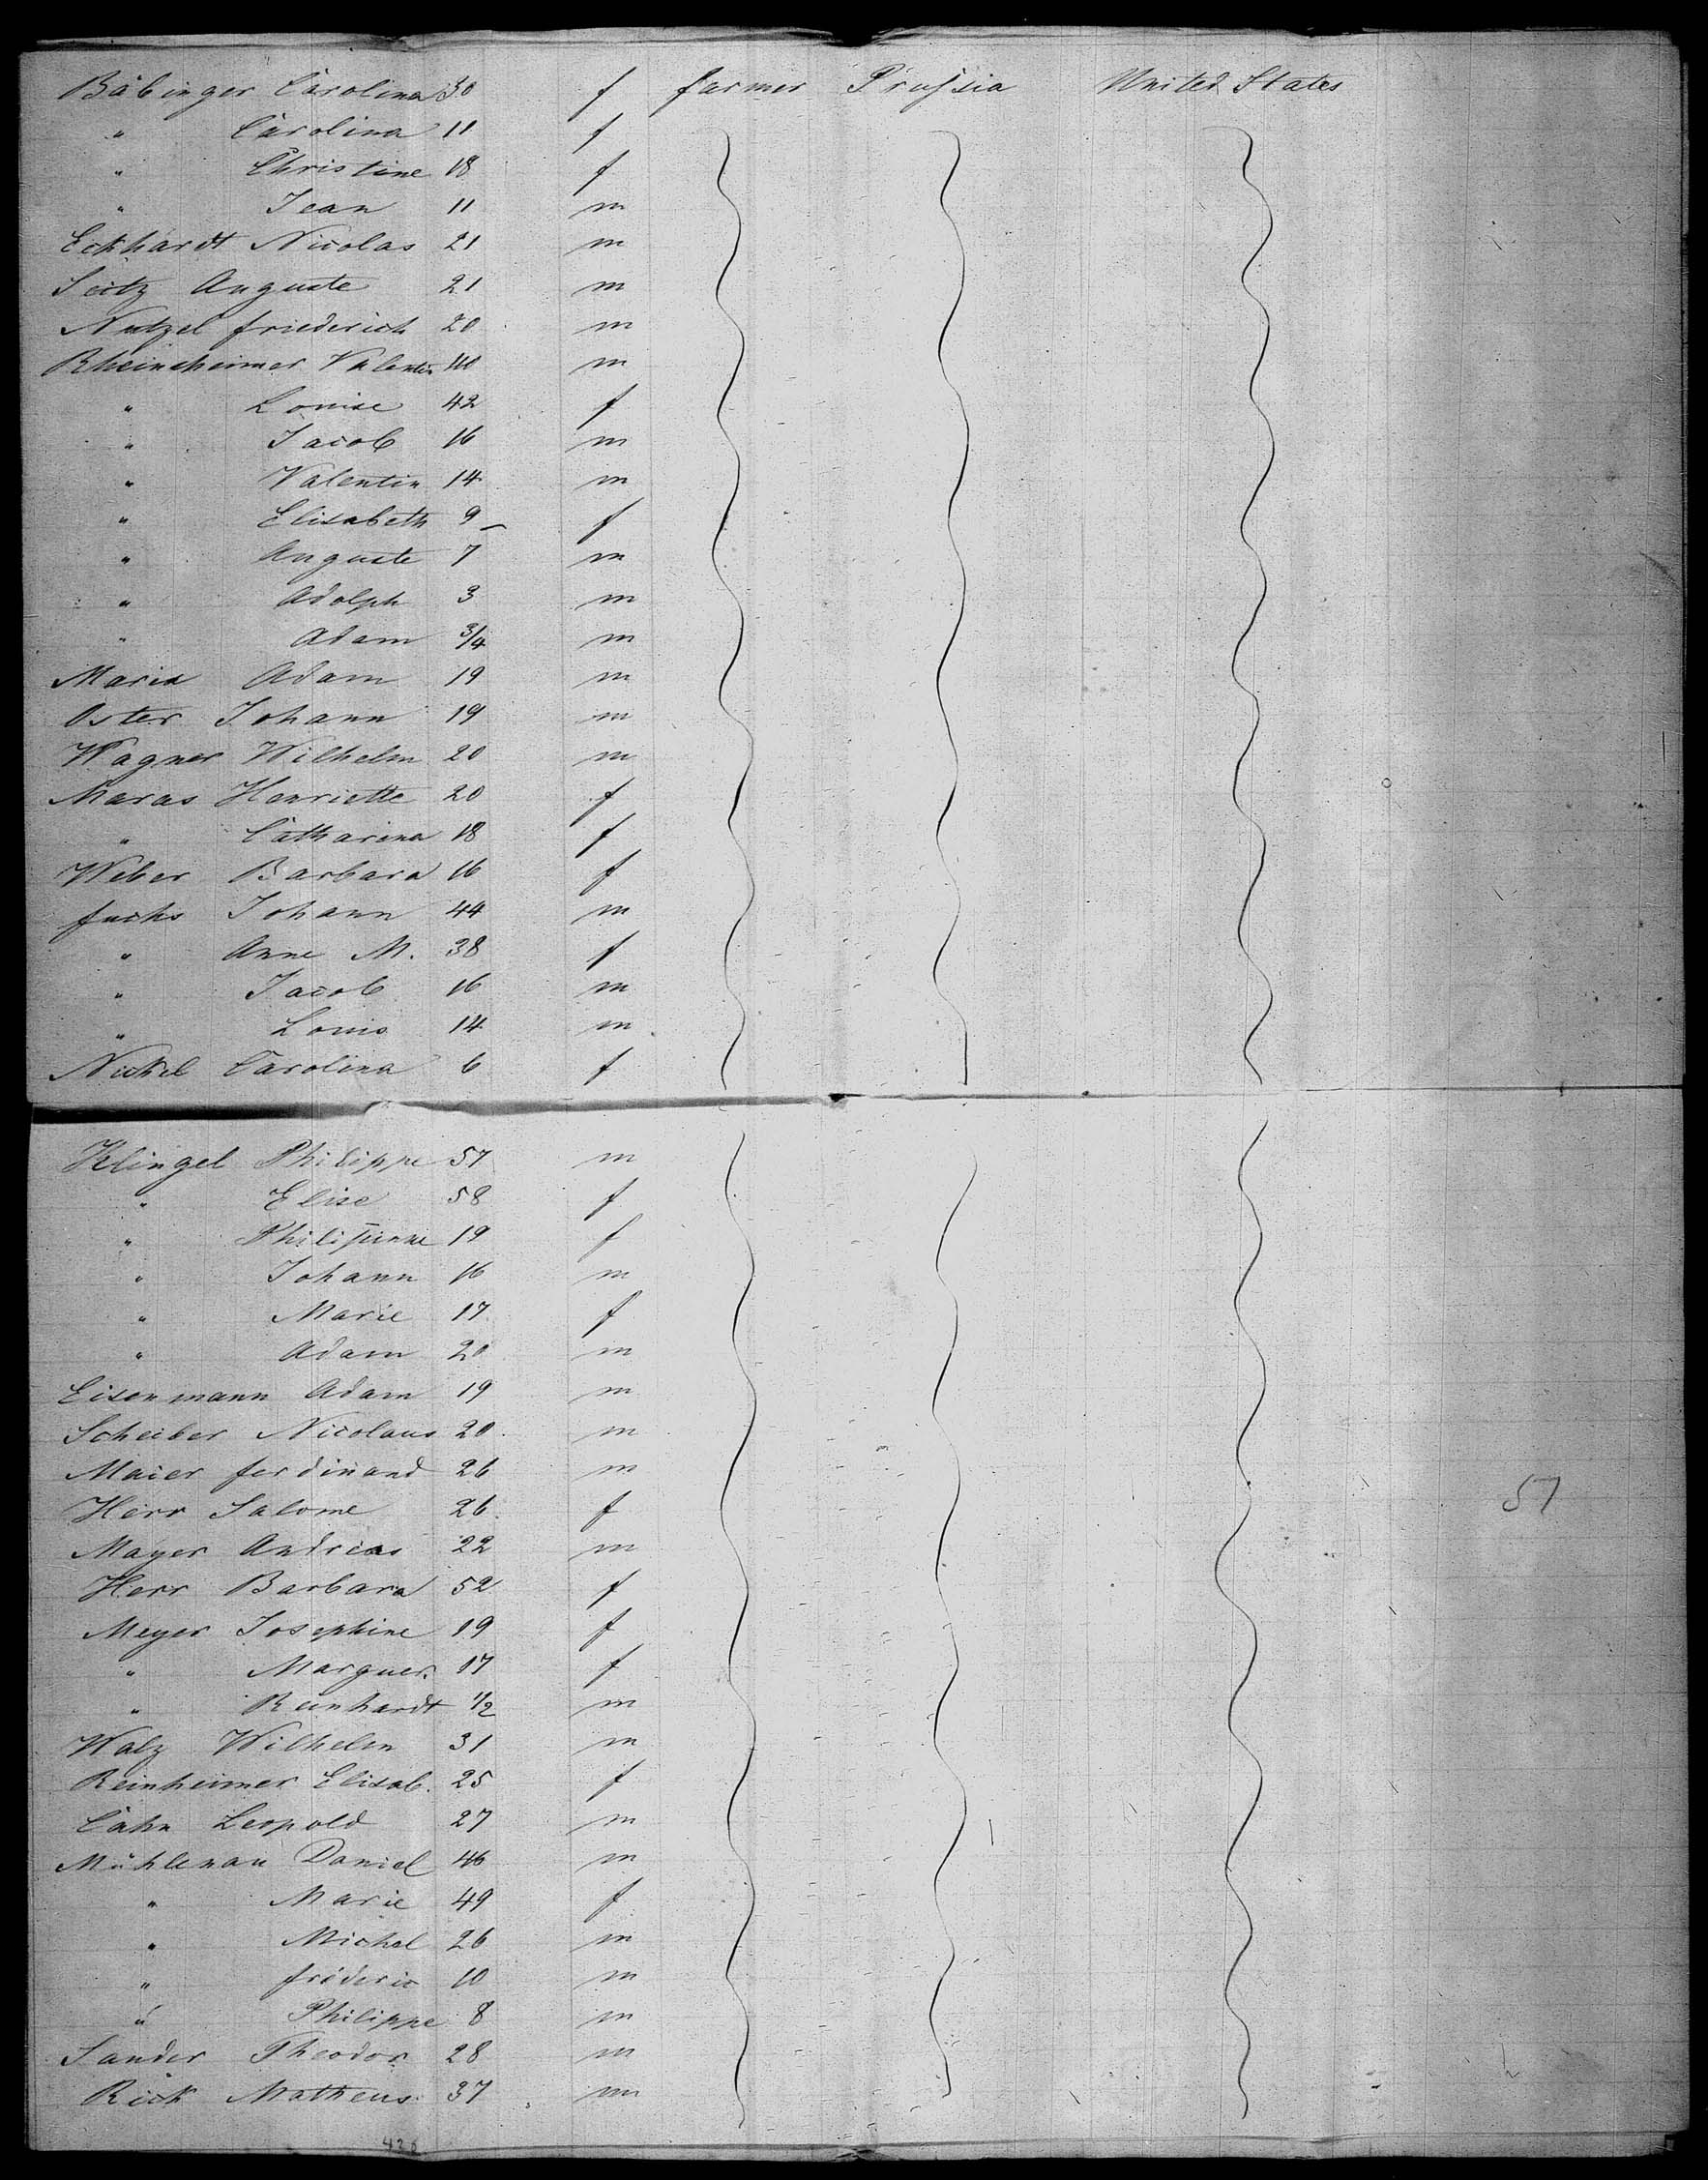 Bäbinger Carolina 30 f farmer Prussia United States
" Carolina 11 f
" Christine 18 f
" Jean 11 m
Eckhardt Nicolas 21 m
Seitz Auguste 21 m
Nutzel friederich 20 m
Rheinsheimer Valentin 40 m
" Louise 42 f
" Jacob 16 m
" Valentin 14 m
" Elisabeth 9 f
" Auguste 7 m
" Adolph 3 m
" Adam 3/4 m
Maria Adam 19 m
Oster Johann 19 m
Wagner Wilhelm 20 m
Maras Henriette 20 f
" Catharina 18 f
Weber Barbara 16 f
fuchs Johann 44 m
" Anne M. 38 f
" Jacob 16 m
" Louis 14 m
Nickel Carolina 6 f
Klingel Philippe 57 m
" Elise 58 f
" 19 f
" Johann 16 m
" Marie 17 f
" Adam 20 m
Eisenmann Adam 19 m
Scheiber Nicolaus 20 m
Maier ferdinand 26 m
Herr Salome 26 f
57
Mayer Andreas 22 m
Herr Barbara 52 f
Meyer Josephine 19 f
" Marguer. 17 f
" Reinhardt 1/2 m
Walz Wilhelm 31 m
Reinheimer Elisab. 25 f
Cahn Leopold 27 m
Mühlenau Daniel 46 m
" Marie 49 f
" Michel 26 m
" fréderic 10 m
" Philippe 8 m
Sander Theodor 28 m
Rick Matheus 37 m